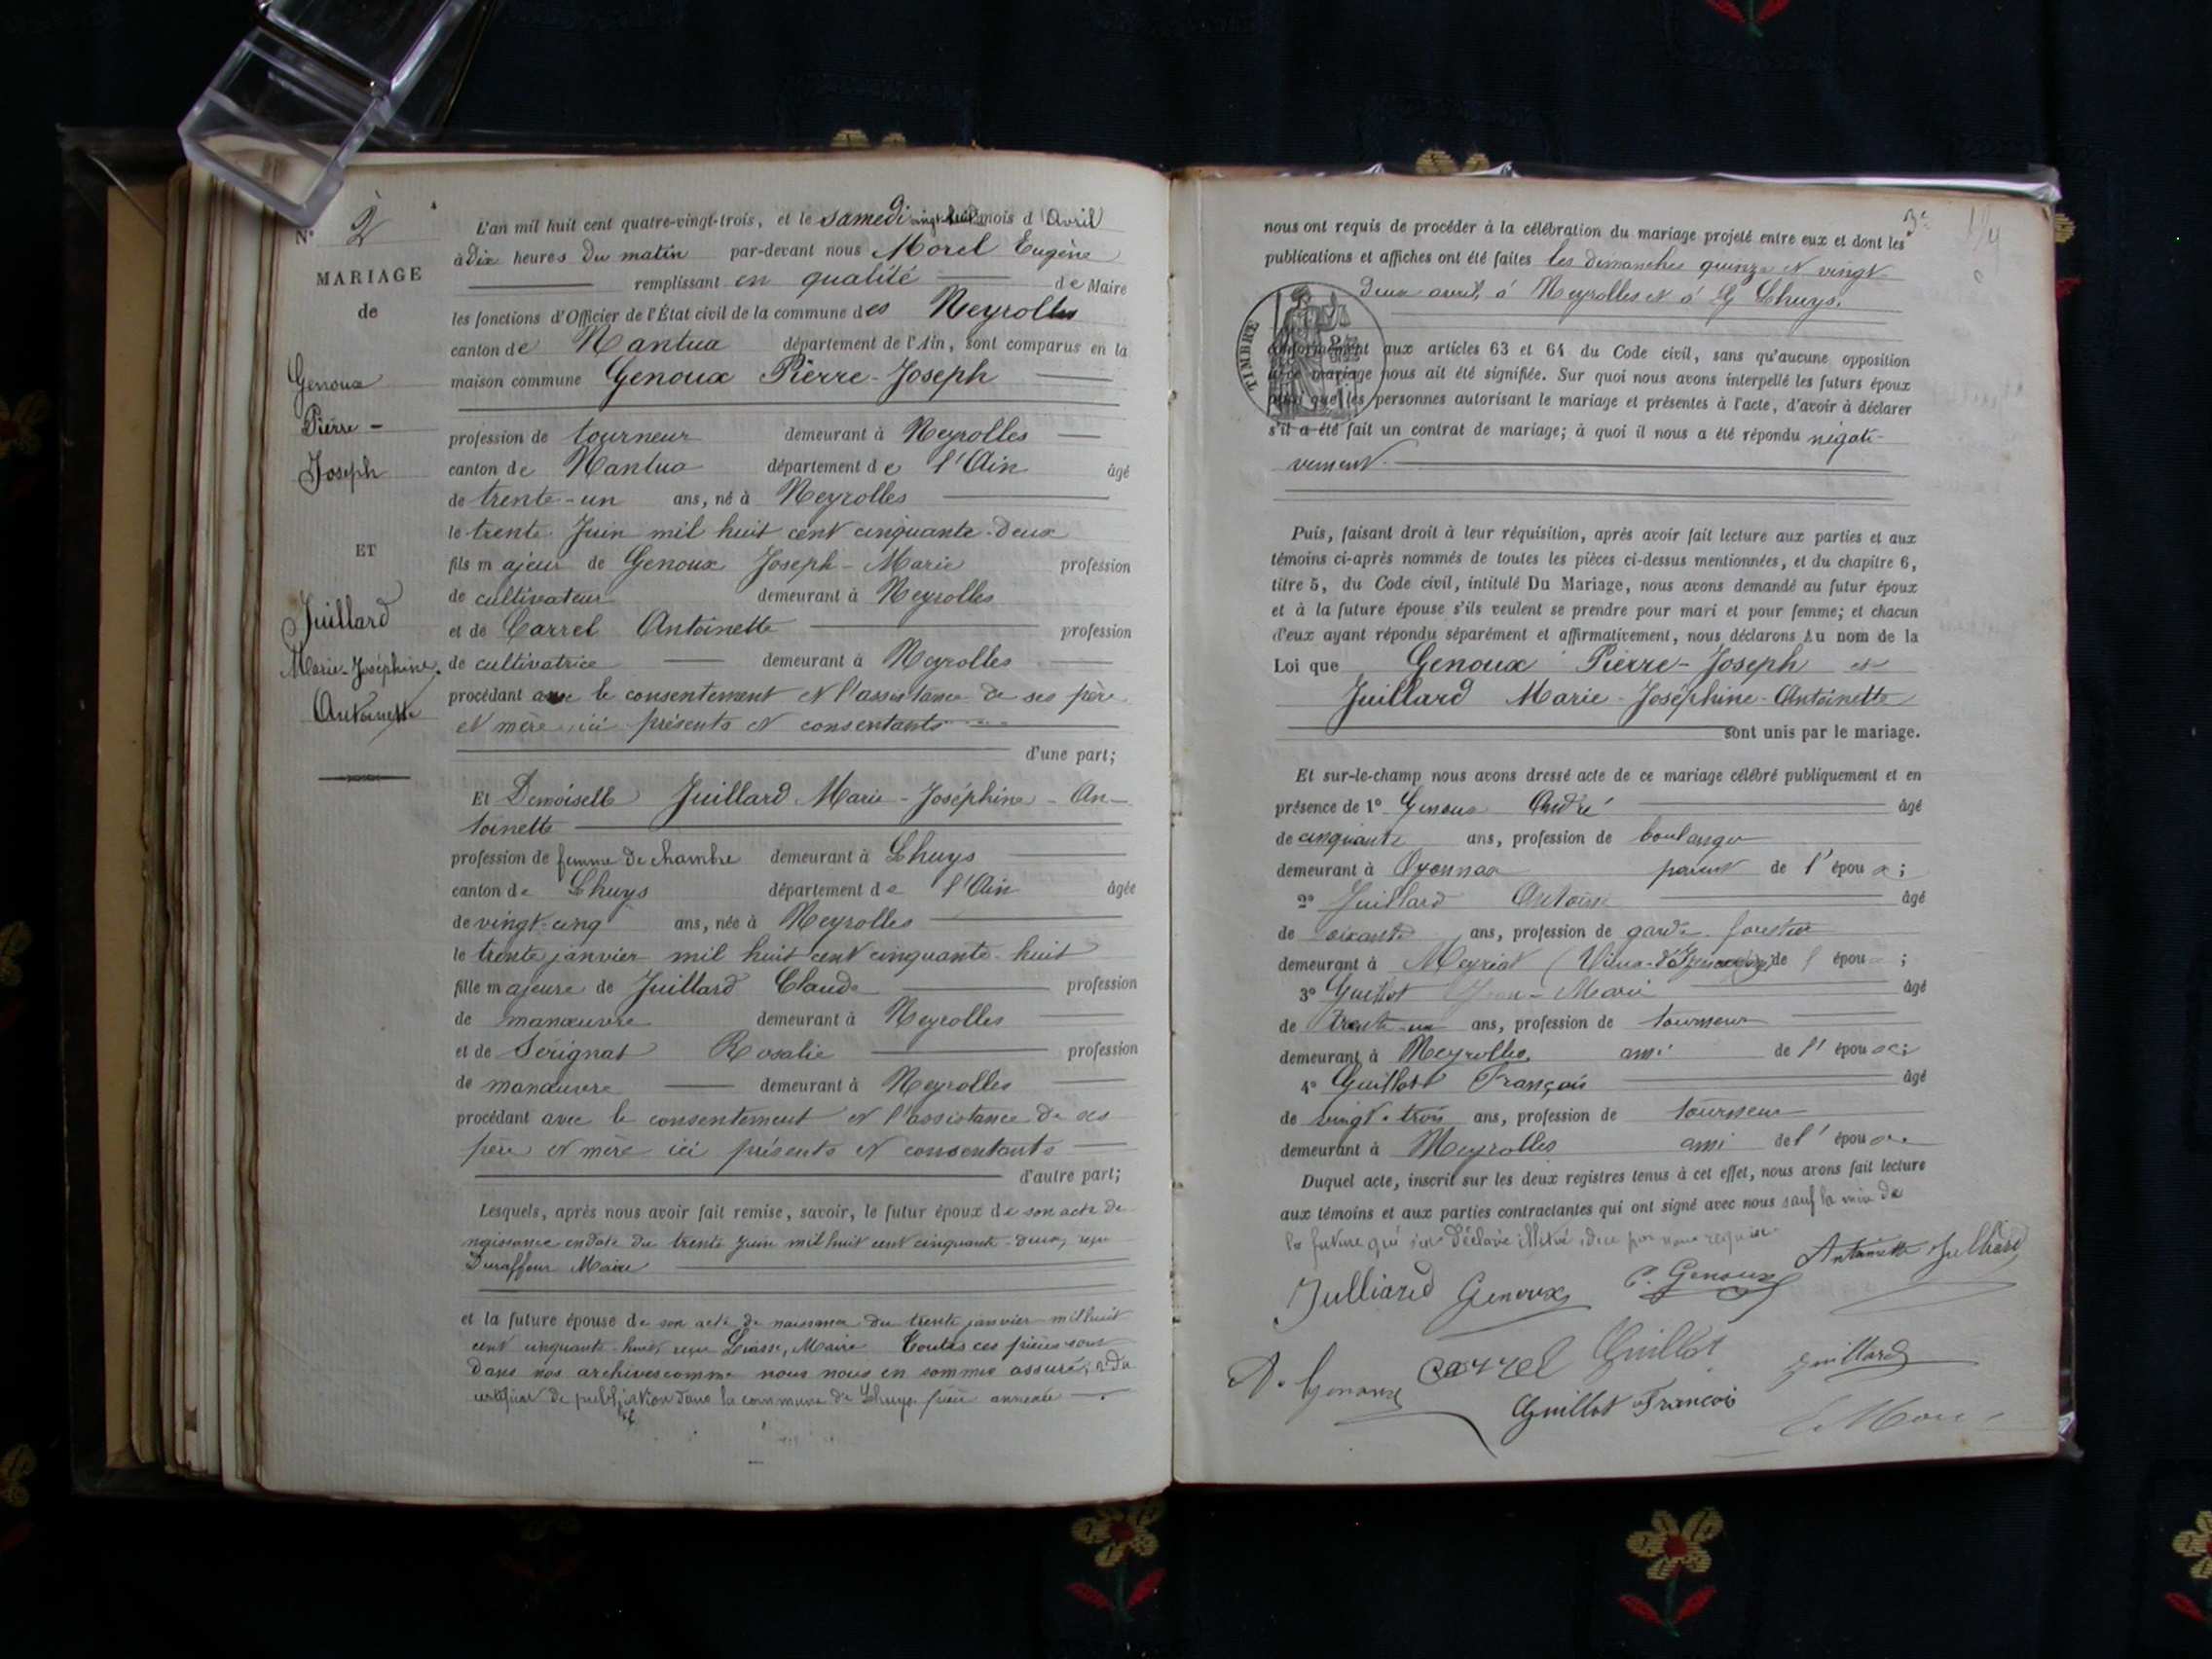 N° 2
MARIAGE
de
Genoux
Pierre-
Joseph
ET
Juillard
Marie-Joséphine
Antoinette
L'an mil huit cent quatre-vingt-trois, et le samedi vingt-huit mois d'Avril
à dix heures du matin par-devant nous Morel Eugène
remplissant en qualité de Maire
les fonctions d'Officier de l'État civil de la commune des Neyrolles
canton de Nantua département de l'Ain, sont comparus en la
maison commune Genoux Pierre-Joseph
profession de tourneur demeurant à Neyrolles
canton de Nantua département de l'Ain âgé
de trente-un ans, né à Neyrolles
le trente Juin mil huit cent cinquante-deux
fils majeur de Genoux Joseph-Marie profession
de cultivateur demeurant à Neyrolles
et de Carrel Antoinette profession
de cultivatrice demeurant à Neyrolles
procédant avec le consentement et l'assistance de ses père
et mère ici présents et consentants
d'une part;
Et Demoiselle Juillard Marie-Joséphine-An-
toinette
profession de femme de chambre demeurant à Lhuys
canton de Lhuys département de l'Ain âgée
de vingt-cinq ans, née à Neyrolles
le trente janvier mil huit cent cinquante-huit
fille majeure de Juillard Claude profession
de manœuvre demeurant à Neyrolles
et de Sérignat Rosalie profession
de manœuvre demeurant à Neyrolles
procédant avec le consentement et l'assistance de ses
père et mère ici présents et consentants
d'autre part;
Lesquels, après nous avoir fait remise, savoir, le futur époux de son acte de
naissance en date du trente Juin mil huit cent cinquante-deux, reçu
Duraffour Maire
et la future épouse de son acte de naissance du trente janvier mil huit
cent cinquante-huit, reçu Maire Toutes ces pièces sont
dans nos archives comme nous nous en sommes assuré, et du
certificat de publication dans la commune de Lhuys pièce annexée
3e
nous ont requis de procéder à la célébration du mariage projeté entre eux et dont les
publications et affiches ont été faites les dimanches quinze et vingt-
deux avril, à Neyrolles et à Lhuys.
TIMBRE
conformément aux articles 63 et 64 du Code civil, sans qu'aucune opposition
à ce mariage nous ait été signifiée. Sur quoi nous avons interpellé les futurs époux
ainsi que les personnes autorisant le mariage et présentes à l'acte, d'avoir à déclarer
s'il a été fait un contrat de mariage; à quoi il nous a été répondu négati-
vement.
Puis, faisant droit à leur réquisition, après avoir fait lecture aux parties et aux
témoins ci-après nommés de toutes les pièces ci-dessus mentionnées, et du chapitre 6,
titre 5, du Code civil, intitulé Du Mariage, nous avons demandé au futur époux
et à la future épouse s'ils veulent se prendre pour mari et pour femme; et chacun
d'eux ayant répondu séparément et affirmativement, nous déclarons Au nom de la
Loi que Genoux Pierre-Joseph et
Juillard Marie-Joséphine-Antoinette
sont unis par le mariage.
Et sur-le-champ nous avons dressé acte de ce mariage célébré publiquement et en
présence de 1° Genoux André âgé
de cinquante ans, profession de boulanger
demeurant à Oyonnax parent de l'époux;
2° Juillard Antoine âgé
de soixante ans, profession de garde forestier
demeurant à Meyriat de l'épou ;
3° Guillot Jean-Marie âgé
de trente-un ans, profession de tourneur
demeurant à Neyrolles ami de l'époux;
4° Guillot François âgé
de vingt-trois ans, profession de tourneur
demeurant à Neyrolles ami de l'époux
Duquel acte, inscrit sur les deux registres tenus à cet effet, nous avons fait lecture
aux témoins et aux parties contractantes qui ont signé avec nous sauf la mère de
la future qui s'est déclarée illettrée de ce par nous requise
Julliard Genoux P. Genoux Antoinette Julliard
A. Genoux Carrel Guillot Juillard
Guillot François